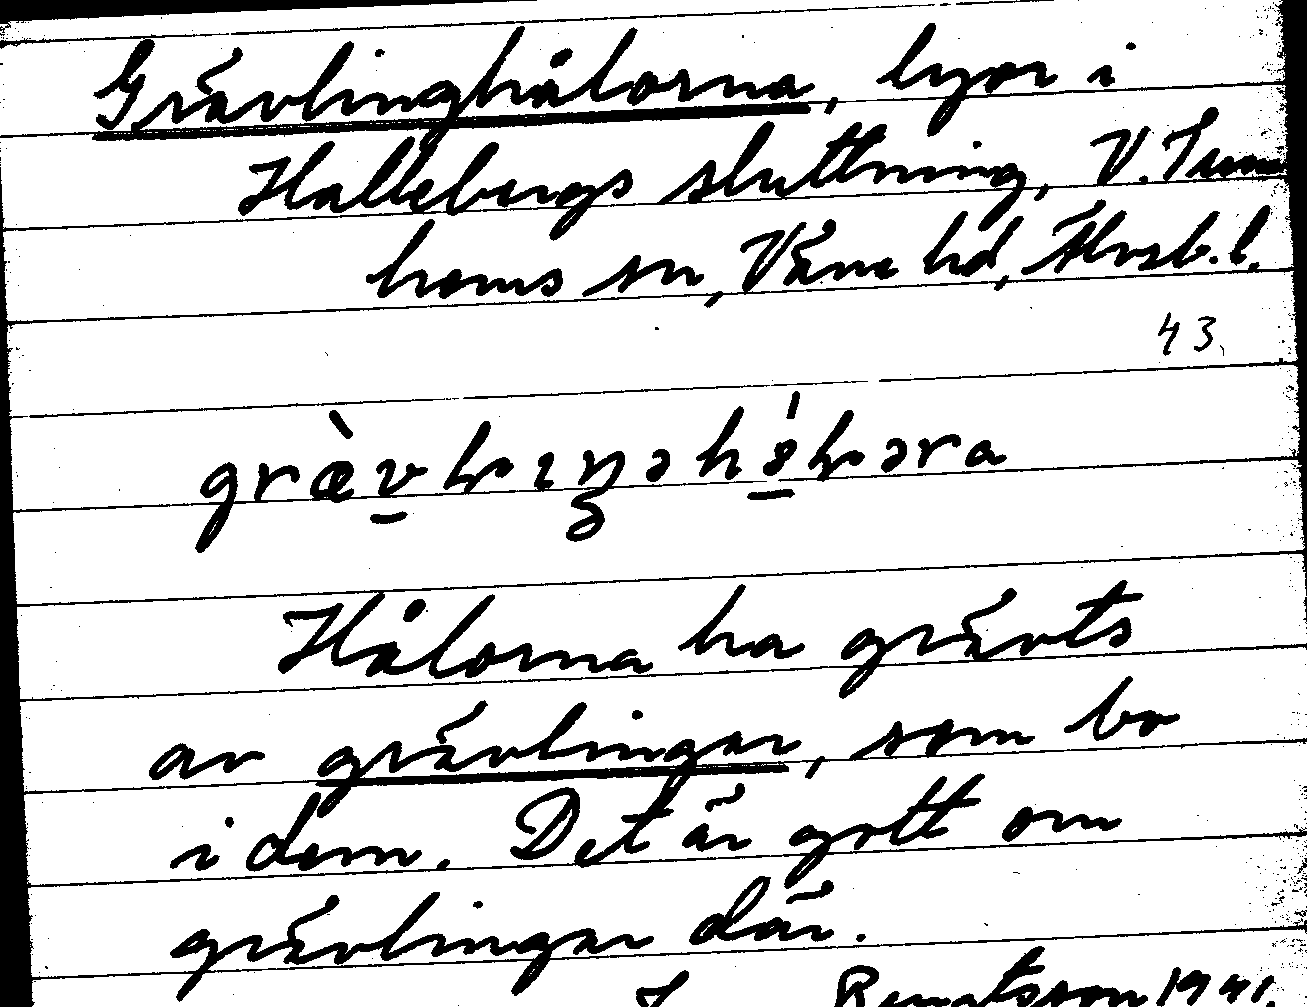 Grävlinghålorna, lyor i
Hallebergs sluttning, V. Tun-
hems sn, Väne hd, Älvsb. l.
43.
Hålorna ha grävts
av grävlingar, som bo
i dem. Det är gott om
grävlingar där.
Bengtsson 1941.